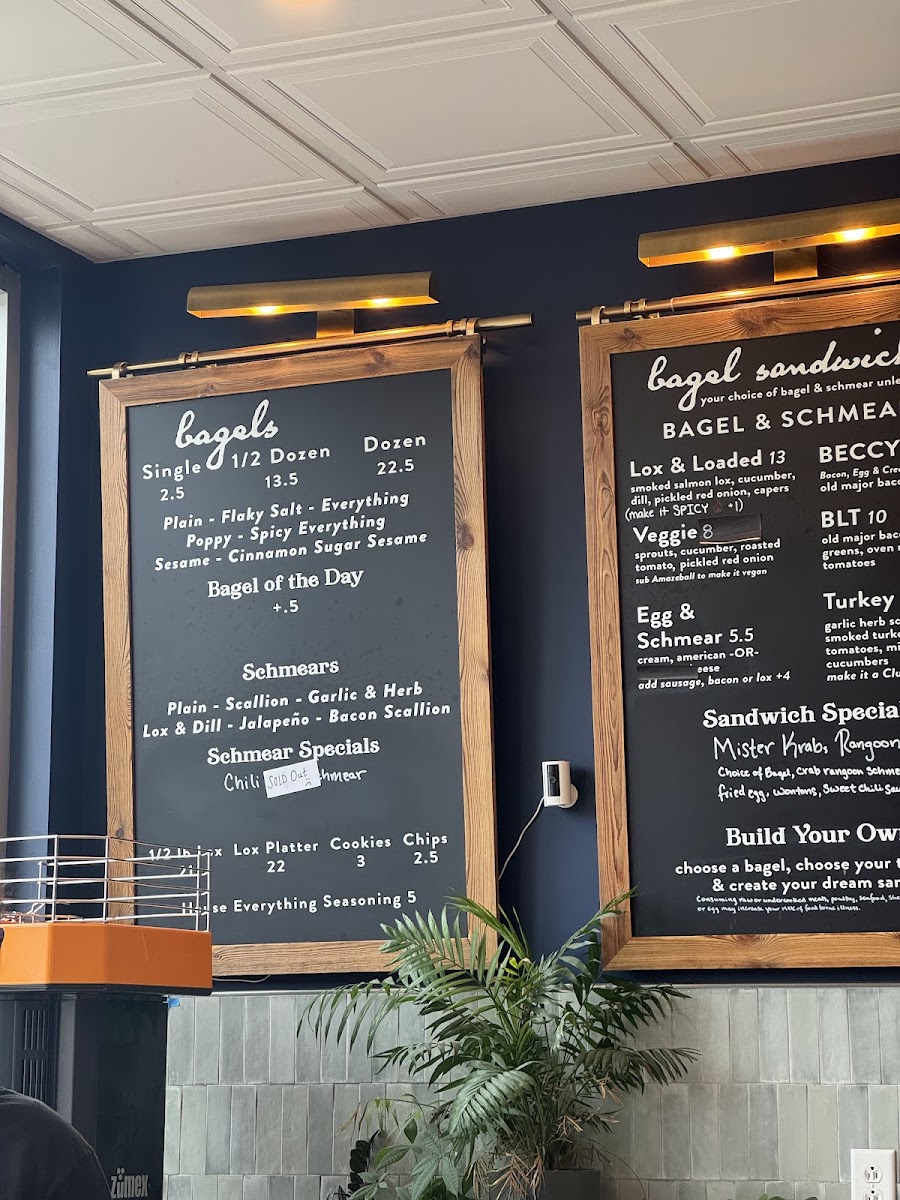 bagels
Single 1/2 Dozen Dozen
2.5 13.5 22.5
Plain - Flaky Salt - Everything
Poppy - Spicy Everything
Sesame - Cinnamon Sugar Sesame
Bagel of the Day
+.5
Schmears
Plain - Scallion - Garlic & Herb
Lox & Dill - Jalapeño - Bacon Scallion
Schmear Specials
Chili SOLD OUT hmear
1/2 lb Lox Platter Cookies Chips
22 3 2.5
House Everything Seasoning 5
bagel sandwich
your choice of bagel & schmear unle
BAGEL & SCHMEA
Lox & Loaded 13
smoked salmon lox, cucumber,
dill, pickled red onion, capers
(make it SPICY +1)
Veggie 8
sprouts, cucumber, roasted
tomato, pickled red onion
sub Amazeball to make it vegan
Egg &
Schmear 5.5
cream, american -OR-
eese
add sausage, bacon or lox +4
BECCY
Bacon, Egg & Cre
old major baco
BLT 10
old major baco
greens, oven r
tomatoes
Turkey
garlic herb sc
smoked turke
tomatoes, mi
cucumbers
make it a Clu
Sandwich Specia
Mister Krabs Rangoon
Choice of Bagel, Crab rangoon Schme
fried egg, wontons, Sweet Chili Sau
Build Your Ow
choose a bagel, choose your t
& create your dream san
Consuming raw or undercooked meats, poultry, seafood, she
or egg may increase your risk of food borne illness.
zümex